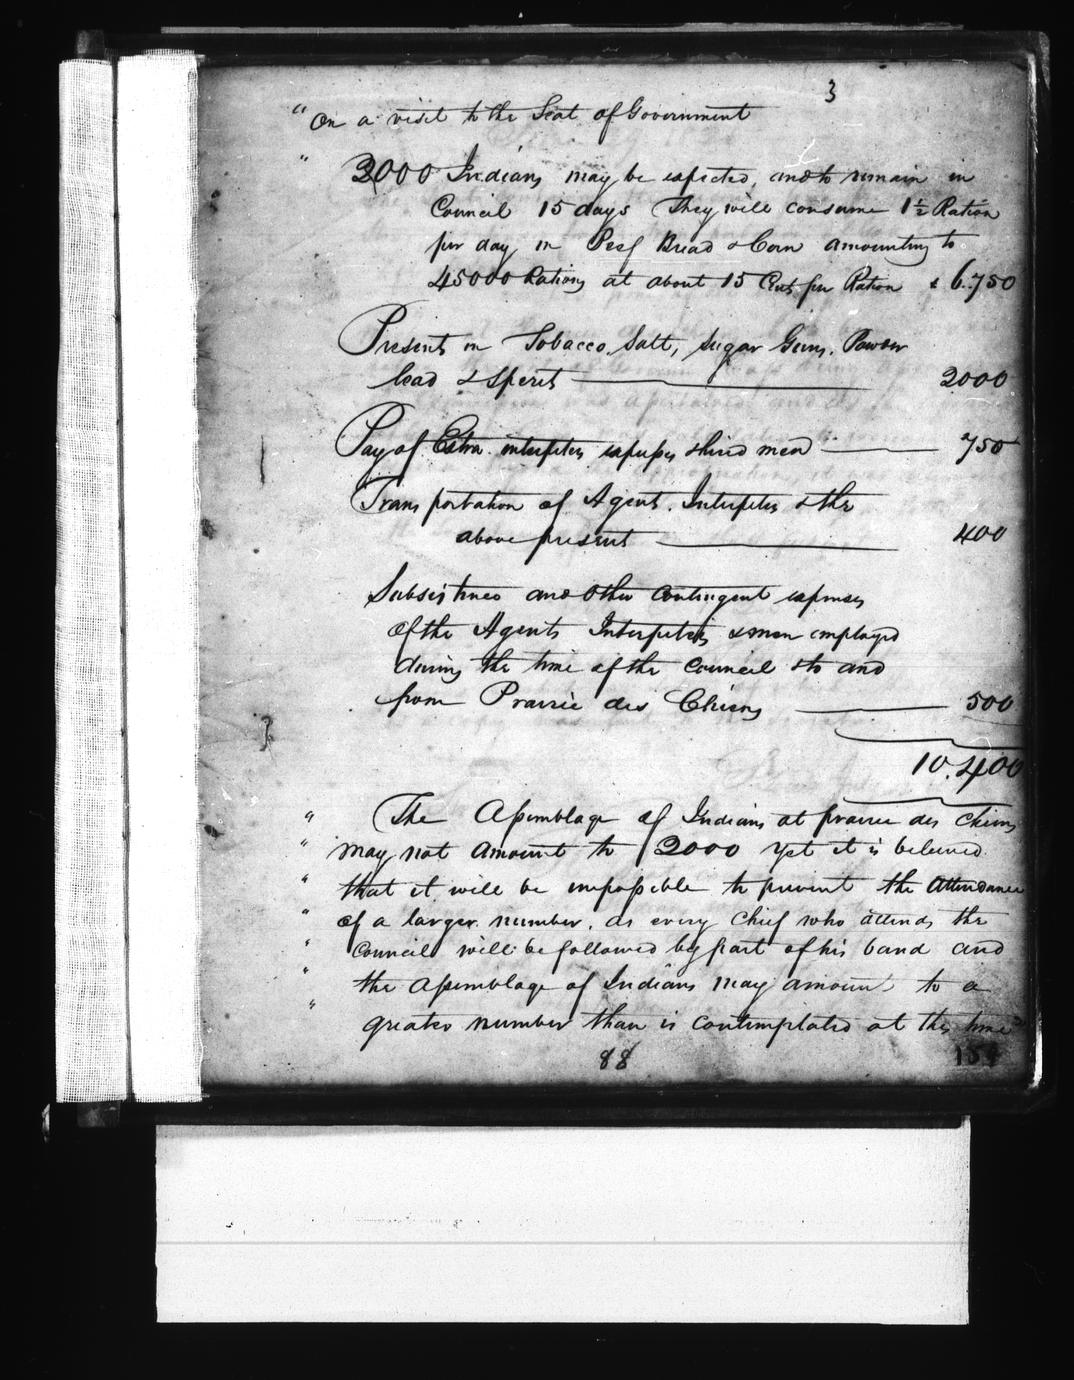 3
" On a visit to the Seat of Government
" 2000 Indians may be expected, and to remain in
Council 15 days They will consume 1½ Ration
per day in Beef Bread & Corn amounting to
45000 Rations at about 15 Cents per Ration $ 6.750
Presents in Tobacco, Salt, Sugar Guns, Powder
lead & Spirits 2000
Pay of Extra interpreters expresses & hired men 750
Transportation of Agent, Interpeters & the
above present 400
Subsistence and other Contingent expenses
of the Agents Interpeters & men employed
during the time of the Council & to and
from Prairie des Chiens 500
10.400
" The Assemblage of Indians at prairie des Chiens
" may not Amount to 2000 yet it is believed
" that it will be impossible to prevent the Attendance
" of a larger number, as every Chief who attends the
" Council will be followed by part of his band and
" the assemblage of Indians may amount to a
" greater number than is contemplated at this time"
88